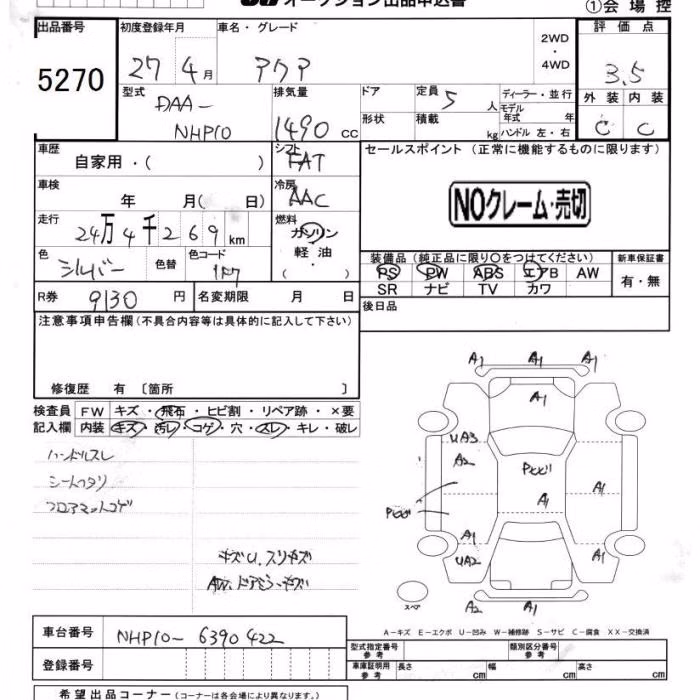 オークション出品申込書 ①会場控
出品番号 初度登録年月 車名・グレード 2WD・4WD 評価点
5270 27年4月 アクア 3.5
型式 排気量 ドア 定員 ディーラー・並行 外装 内装
DAA- 1490cc 5人 モデル年式 年 C C
NHP10 形状 積載 kg ハンドル 左・右
車歴 自家用・( ) シフト FAT セールスポイント (正常に機能するものに限ります)
車検 年 月( 日) 冷房 AAC NOクレーム・売切
走行 24万4千269km 燃料 ガソリン
軽油・( )
色 シルバー 色替 色コード 1F7 装備品 (純正品に限り○をつけてください) 新車保証書
PS PW ABS エアB AW 有・無
SR ナビ TV カワ
R券 9130円 名変期限 月 日 後日品
注意事項申告欄 (不具合内容等は具体的に記入して下さい)
修復歴 有 〔箇所 〕
検査員 FW キズ・飛石・ヒビ割・リペア跡・×要
記入欄 内装 キズ・汚レ・コゲ・穴・スレ・キレ・破レ
ハンドルスレ
シートヘタリ
フロアマットコゲ
キズU.スリキズ
A1 A1 A1
A1
UA3
A2 A1
A1
A1 A1
UA2
A2 A1
スペア
A-キズ E-エクボ U-凹み W-補修跡 S-サビ C-腐食 XX-交換済
車台番号 NHP10-6390422
型式指定番号 参考 類別区分番号 参考
登録番号 車庫証明用 参考 長さ cm 幅 cm 高さ cm
希望出品コーナー (コーナーは各会場により異なります。)